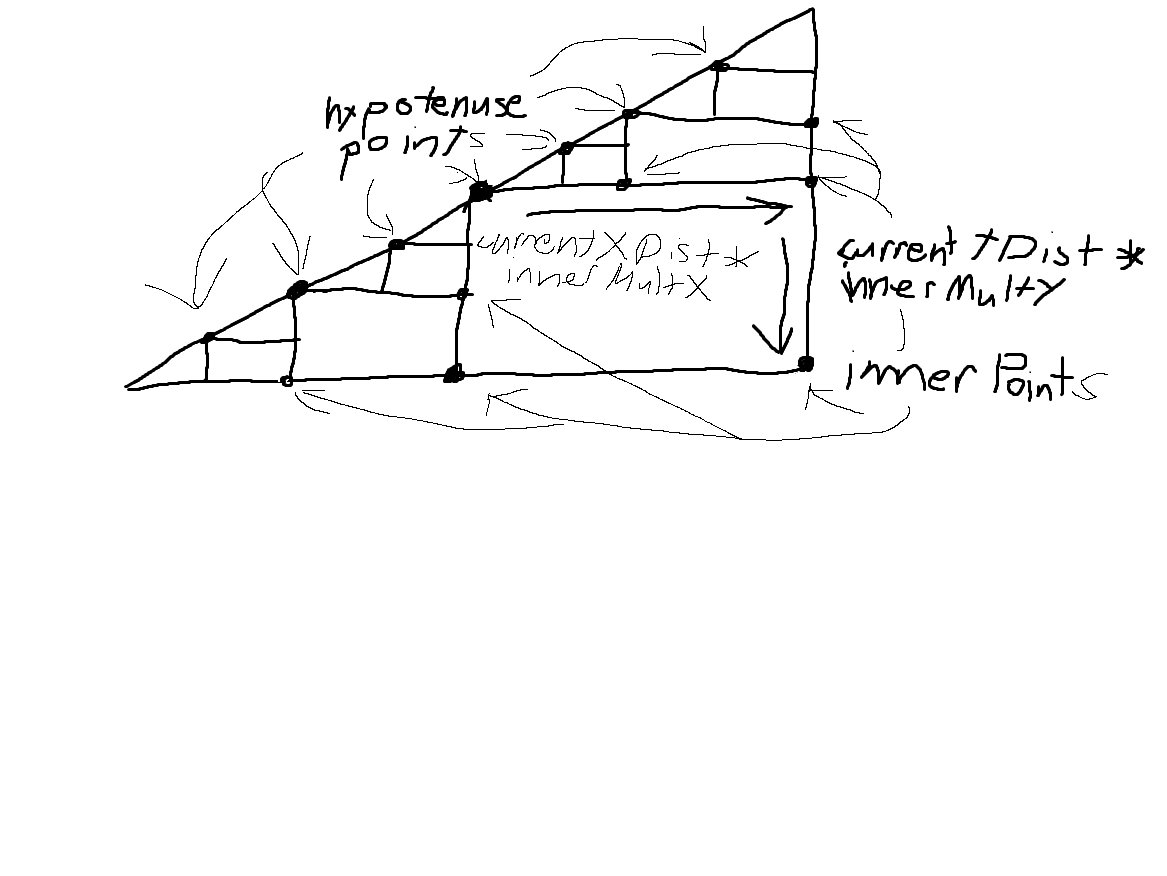 hypotenuse
points
current X Dist *
inner Mult X
current Y Dist *
inner Mult Y
inner Points